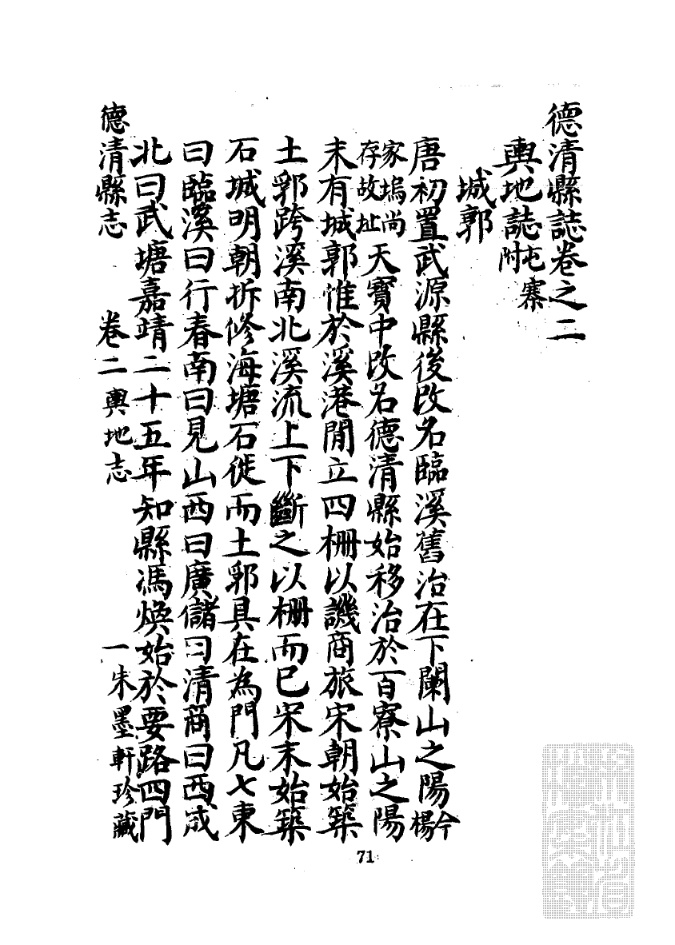 德清縣誌卷之二
輿地誌附屯寨
城郭
唐初置武源縣後改名臨溪舊治在下闌山之陽今楊
家塢尚存故址天寶中改名德清縣始移治於百寮山之陽
末有城郭惟於溪港閒立四柵以譏商旅宋朝始築
土郛跨溪南北溪流上下斷之以柵而已宋末始築
石城明朝拆修海塘石徙而土郛具在為門凡七東
曰臨溪曰行春南曰見山西曰廣儲曰清商曰西成
北曰武塘嘉靖二十五年知縣馮煥始於要路四門
德清縣志 卷二 輿地志 一 朱墨軒珍藏
71